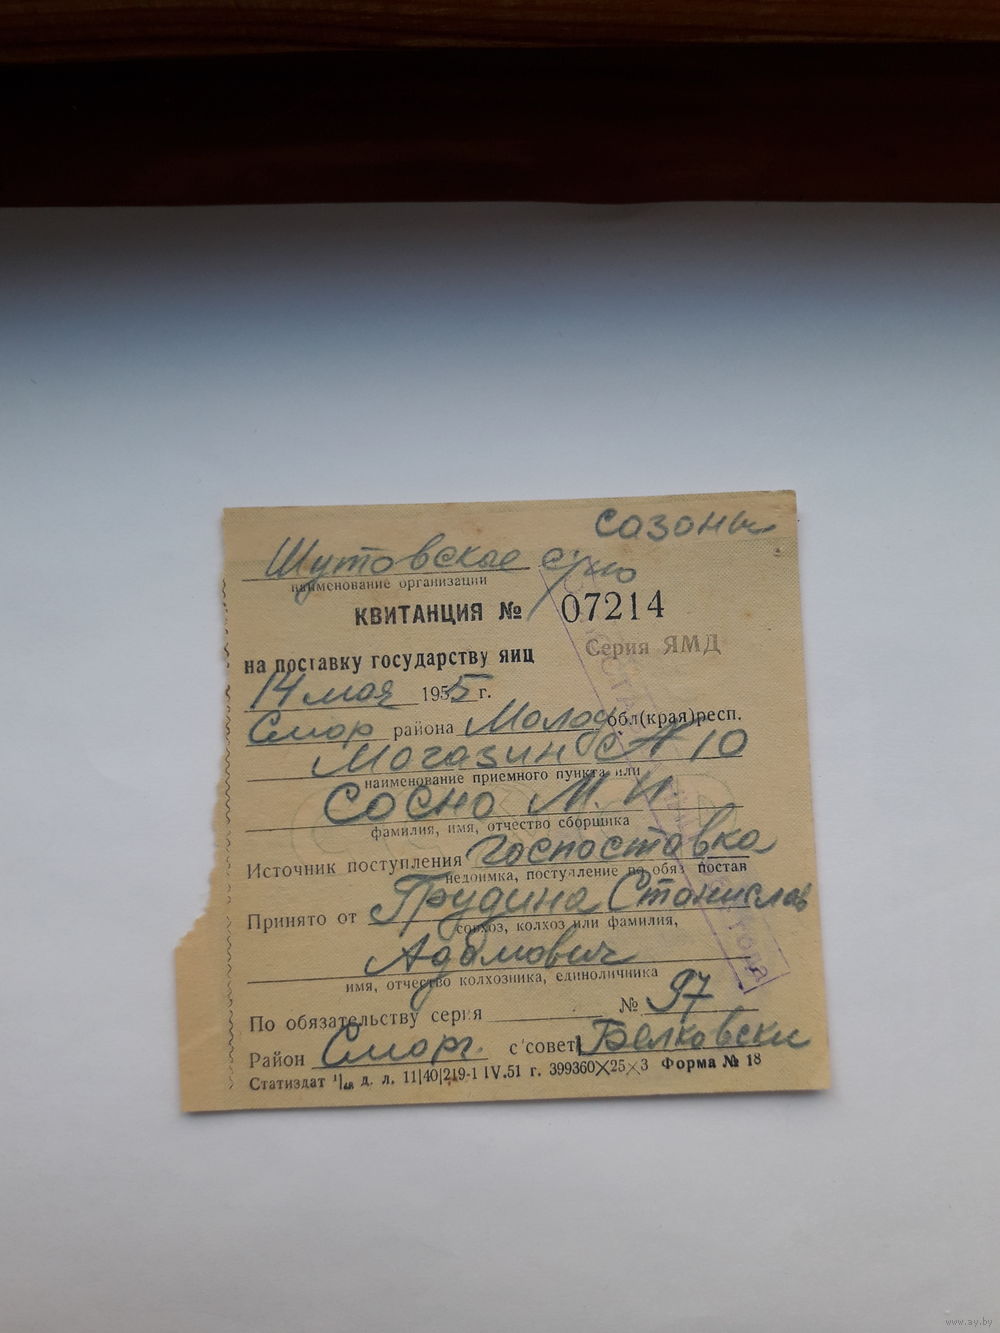 сазоны
Шутовское с/по
наименование организации
КВИТАНЦИЯ № 07214
на поставку государству яиц Серия ЯМД
14 мая 1955 г.
Смор района Молод обл(края)респ.
Магазин № 10
наименование приемного пункта или
Сосно М. И
фамилия, имя, отчество сборщика
Источник поступления госпоставка
недоимка, поступление по обяз постав
Принято от Грудина Станислав
совхоз, колхоз или фамилия,
Адамович
имя, отчество колхозника, единоличника
По обязательству серия № 97
Район Сморг. с совет Белковски
Статиздат 1/48 д. л. 11|40|219-1 IV.51 г. 399360×25×3 Форма № 18
www.ay.by